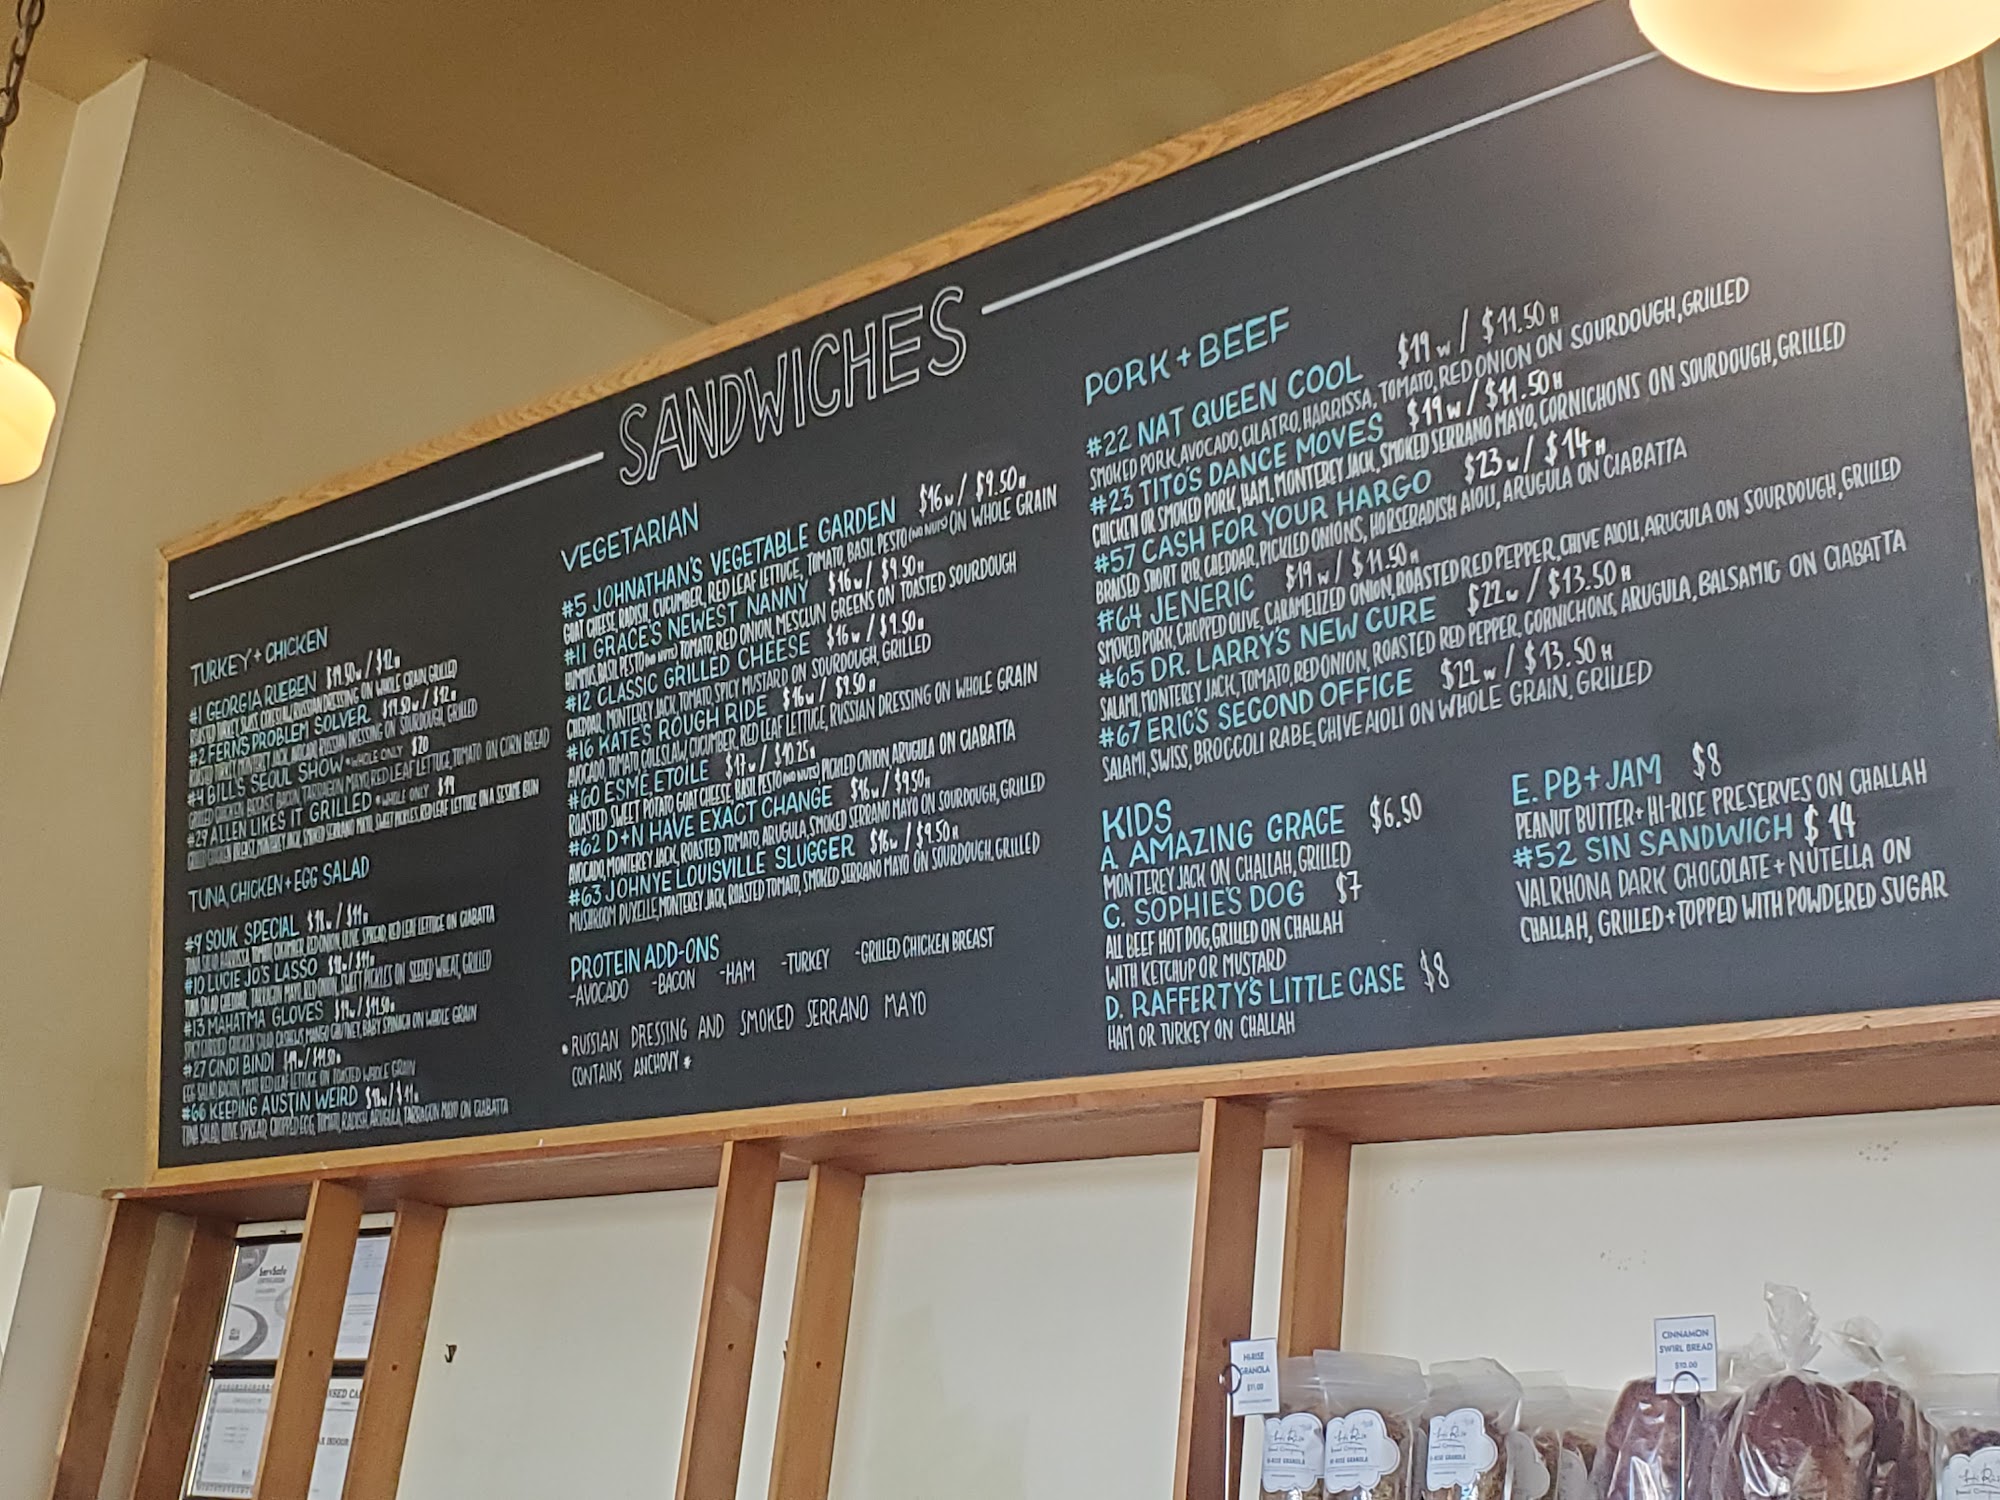 SANDWICHES
TURKEY + CHICKEN
#1 GEORGIA RUEBEN $19.50w / $12H
ROASTED TURKEY, SWISS, COLESLAW, RUSSIAN DRESSING ON WHOLE GRAIN, GRILLED
#2 FERN'S PROBLEM SOLVER $19.50w / $12H
ROASTED TURKEY, MONTEREY JACK, AVOCADO, RUSSIAN DRESSING ON SOURDOUGH, GRILLED
#4 BILL'S SEOUL SHOW *WHOLE ONLY $20
GRILLED CHICKEN BREAST, BACON, TARRAGON MAYO, RED LEAF LETTUCE, TOMATO ON CORN BREAD
#29 ALLEN LIKES IT GRILLED *WHOLE ONLY $19
GRILLED CHICKEN BREAST, MONTEREY JACK, SMOKED SERRANO MAYO, SWEET PICKLES, RED LEAF LETTUCE ON A SESAME BUN
TUNA, CHICKEN + EGG SALAD
#9 SOUK SPECIAL $18w / $11H
TUNA SALAD, HARRISSA, TOMATO, CUCUMBER, RED ONION, OLIVE SPREAD, RED LEAF LETTUCE ON CIABATTA
#10 LUCIE JO'S LASSO $18w / $11H
TUNA SALAD, CHEDDAR, TARRAGON MAYO, RED ONION, SWEET PICKLES ON SEEDED WHEAT, GRILLED
#13 MAHATMA GLOVES $19w / $11.50H
SPICY CURRIED CHICKEN SALAD, CASHEWS, MANGO CHUTNEY, BABY SPINACH ON WHOLE GRAIN
#27 CINDI BINDI $19w / $11.50H
EGG SALAD, BACON, MAYO, RED LEAF LETTUCE ON TOASTED WHOLE GRAIN
#66 KEEPING AUSTIN WEIRD $18w / $11H
TUNA SALAD, OLIVE SPREAD, CHOPPED EGG, TOMATO, RADISH, ARUGULA, TARRAGON MAYO ON CIABATTA
VEGETARIAN
#5 JOHNATHAN'S VEGETABLE GARDEN $16w / $9.50H
GOAT CHEESE, RADISH, CUCUMBER, RED LEAF LETTUCE, TOMATO, BASIL PESTO (NO NUTS) ON WHOLE GRAIN
#11 GRACE'S NEWEST NANNY $16w / $9.50H
HUMMUS, BASIL PESTO (NO NUTS) TOMATO, RED ONION, MESCLUN GREENS ON TOASTED SOURDOUGH
#12 CLASSIC GRILLED CHEESE $16w / $9.50H
CHEDDAR, MONTEREY JACK, TOMATO, SPICY MUSTARD ON SOURDOUGH, GRILLED
#16 KATE'S ROUGH RIDE $16w / $9.50H
AVOCADO, TOMATO COLESLAW, CUCUMBER, RED LEAF LETTUCE, RUSSIAN DRESSING ON WHOLE GRAIN
#60 ESMÉ ETOILE $17w / $10.25H
ROASTED SWEET POTATO GOAT CHEESE, BASIL PESTO (NO NUTS) PICKLED ONION ARUGULA ON CIABATTA
#62 D+N HAVE EXACT CHANGE $16w / $9.50H
AVOCADO, MONTEREY JACK, ROASTED TOMATO, ARUGULA, SMOKED SERRANO MAYO ON SOURDOUGH, GRILLED
#63 JOHNYE LOUISVILLE SLUGGER $16w / $9.50H
MUSHROOM DUXELLE, MONTEREY JACK, ROASTED TOMATO, SMOKED SERRANO MAYO ON SOURDOUGH, GRILLED
PROTEIN ADD-ONS
-AVOCADO -BACON -HAM -TURKEY -GRILLED CHICKEN BREAST
*RUSSIAN DRESSING AND SMOKED SERRANO MAYO
CONTAINS ANCHOVY*
PORK + BEEF
#22 NAT QUEEN COOL $19w / $11.50H
SMOKED PORK, AVOCADO, CILATRO, HARRISSA, TOMATO, RED ONION ON SOURDOUGH, GRILLED
#23 TITO'S DANCE MOVES $19w / $11.50H
CHICKEN OR SMOKED PORK, HAM, MONTEREY JACK, SMOKED SERRANO MAYO, CORNICHONS ON SOURDOUGH, GRILLED
#57 CASH FOR YOUR HARGO $23w / $14H
BRAISED SHORT RIB, CHEDDAR, PICKLED ONIONS, HORSERADISH AIOLI, ARUGULA ON CIABATTA
#64 JENERIC $19w / $11.50H
SMOKED PORK, CHOPPED OLIVE, CARAMELIZED ONION, ROASTED RED PEPPER, CHIVE AIOLI, ARUGULA ON SOURDOUGH, GRILLED
#65 DR. LARRY'S NEW CURE $22w / $13.50H
SALAMI, MONTEREY JACK, TOMATO, RED ONION, ROASTED RED PEPPER, CORNICHONS, ARUGULA, BALSAMIC ON CIABATTA
#67 ERIC'S SECOND OFFICE $22w / $13.50H
SALAMI, SWISS, BROCCOLI RABE, CHIVE AIOLI ON WHOLE GRAIN, GRILLED
KIDS
A. AMAZING GRACE $6.50
MONTEREY JACK ON CHALLAH, GRILLED
C. SOPHIE'S DOG $7
ALL BEEF HOT DOG, GRILLED ON CHALLAH
WITH KETCHUP OR MUSTARD
D. RAFFERTY'S LITTLE CASE $8
HAM OR TURKEY ON CHALLAH
E. PB + JAM $8
PEANUT BUTTER + HI-RISE PRESERVES ON CHALLAH
#52 SIN SANDWICH $14
VALRHONA DARK CHOCOLATE + NUTELLA ON
CHALLAH, GRILLED + TOPPED WITH POWDERED SUGAR
ServSafe
HI-RISE
GRANOLA
$11.00
CINNAMON
SWIRL BREAD
$10.00